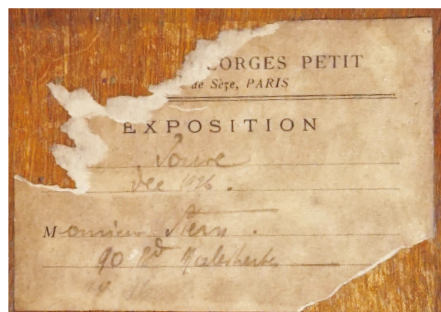 EORGES PETIT
de Sèze, PARIS
EXPOSITION
Dec 1926.
Monsieur Stern.
90 Bd Malesherbes